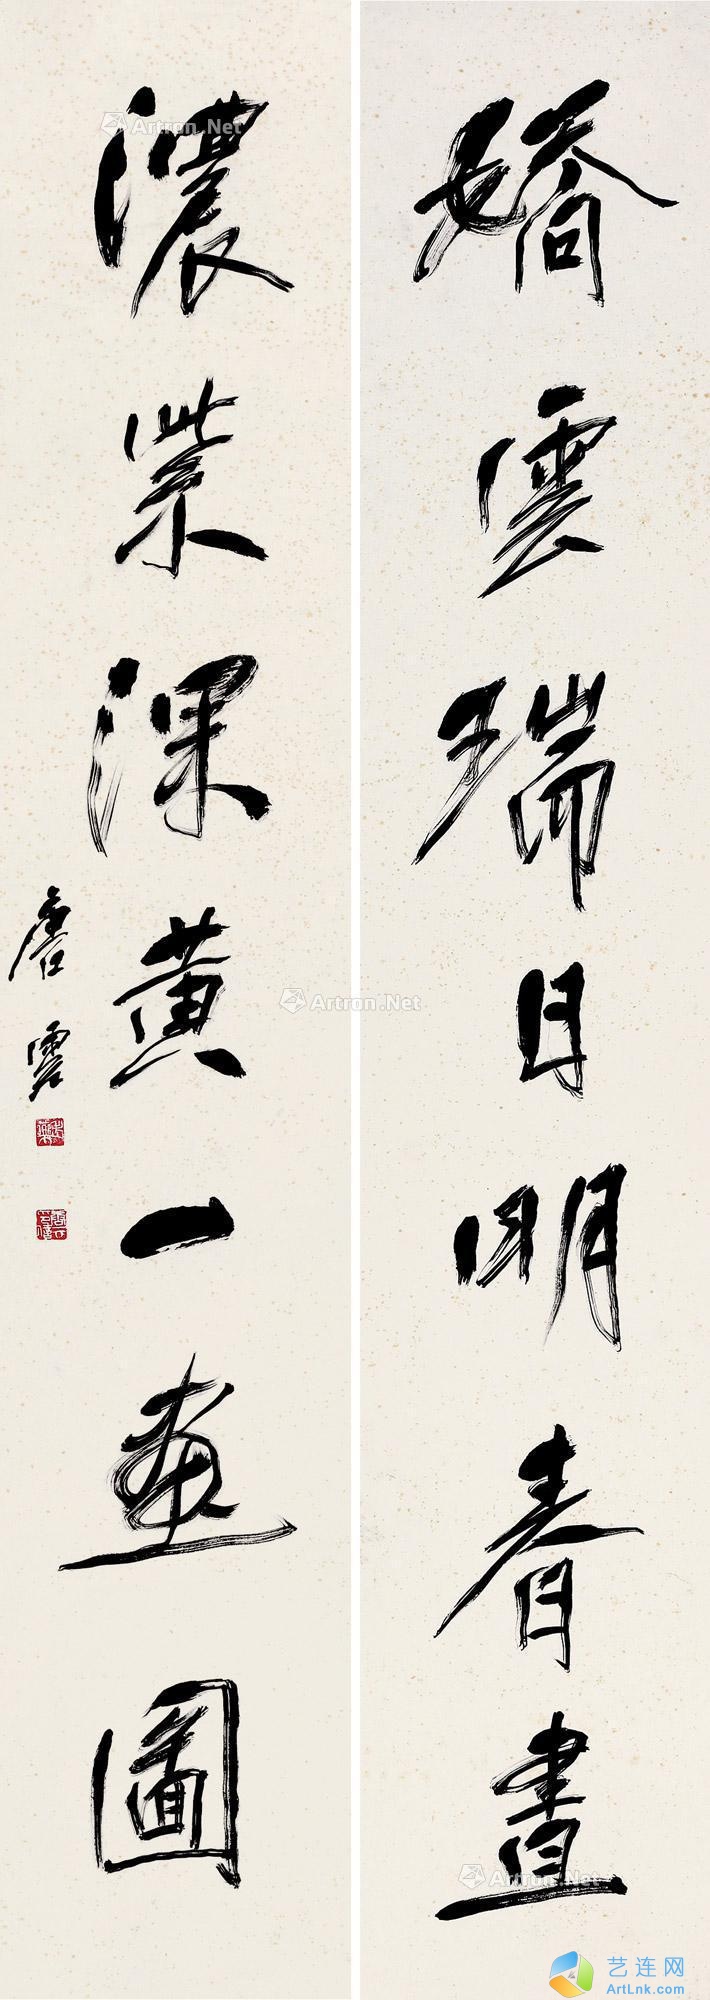 嬌雲瑞日明春晝
濃紫深黄一畫圖
唐雲
Artron.Net
Artron.Net
Artron.Net
艺连网
ArtLnk.com